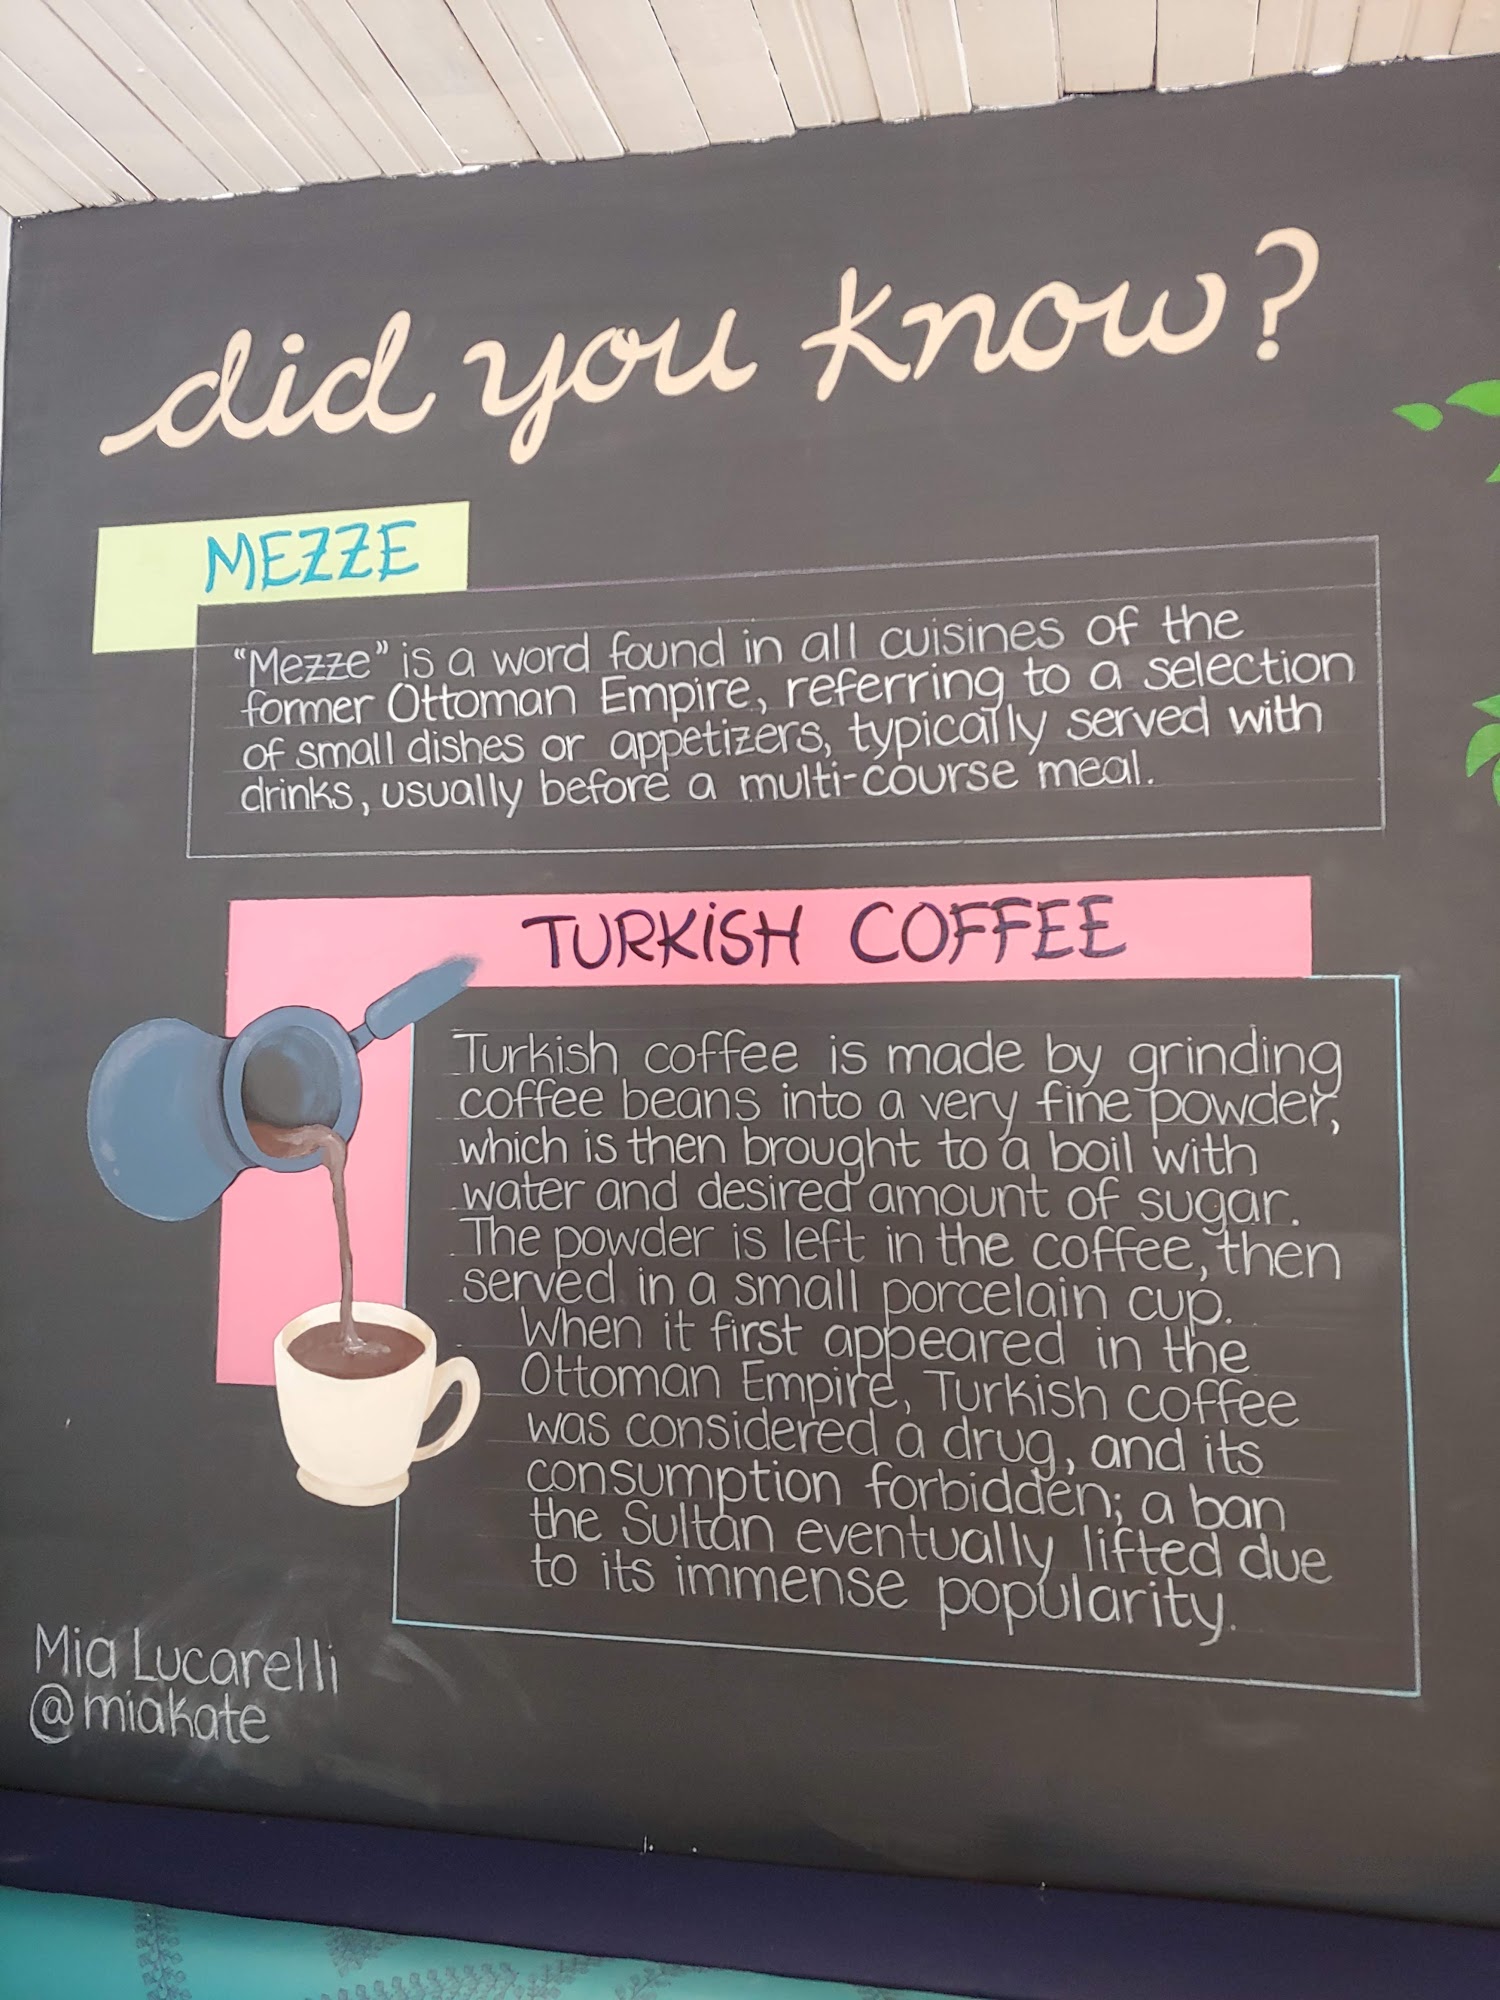 did you know?
MEZZE
"Mezze" is a word found in all cuisines of the
former Ottoman Empire, referring to a selection
of small dishes or appetizers, typically served with
drinks, usually before a multi-course meal.
TURKiSH COFFEE
Turkish coffee is made by grinding
coffee beans into a very fine powder,
which is then brought to a boil with
water and desired amount of sugar.
The powder is left in the coffee, then
served in a small porcelain cup.
When it first appeared in the
Ottoman Empire, Turkish coffee
was considered a drug, and its
consumption forbidden; a ban
the Sultan eventually lifted due
to its immense popularity.
Mia Lucarelli
@miakate